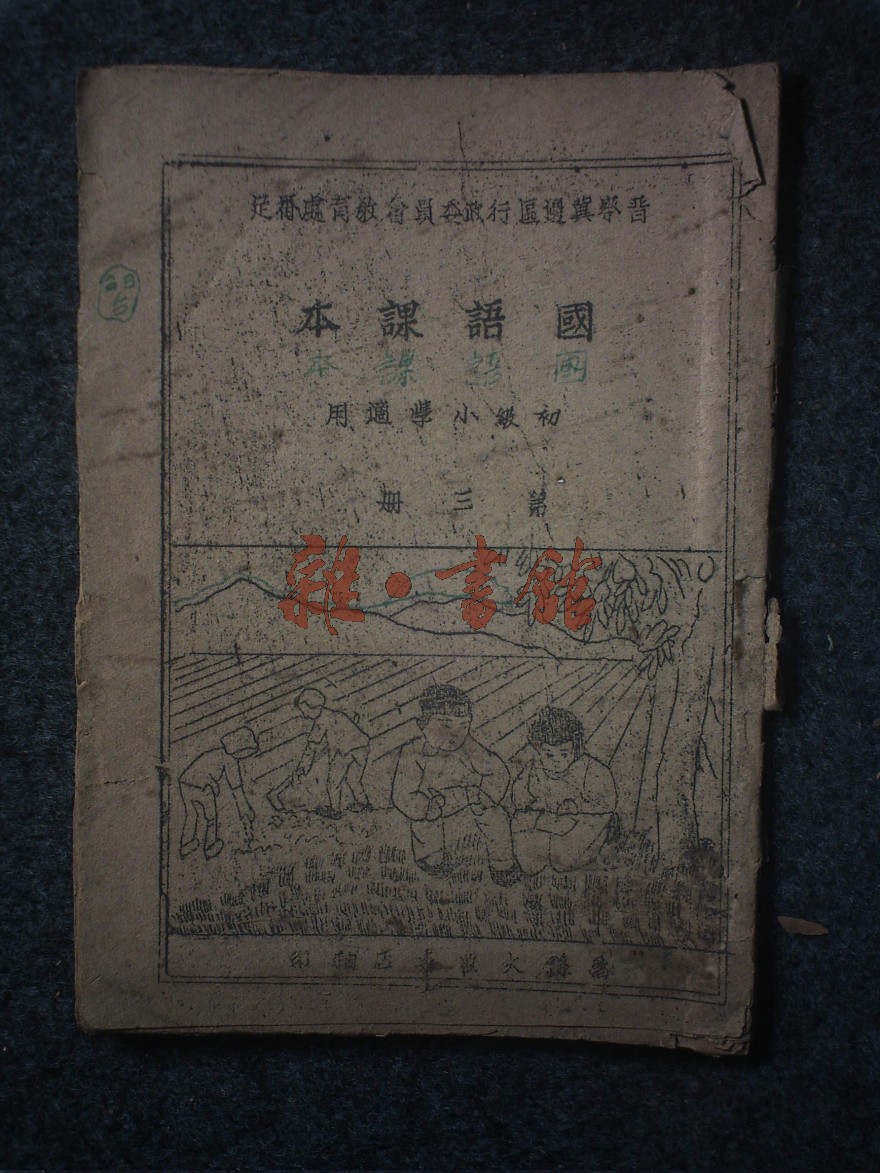 晉察冀邊區行政委員會教育處審定
國語課本
國語課本
初級小學適用
第三册
雜·書館